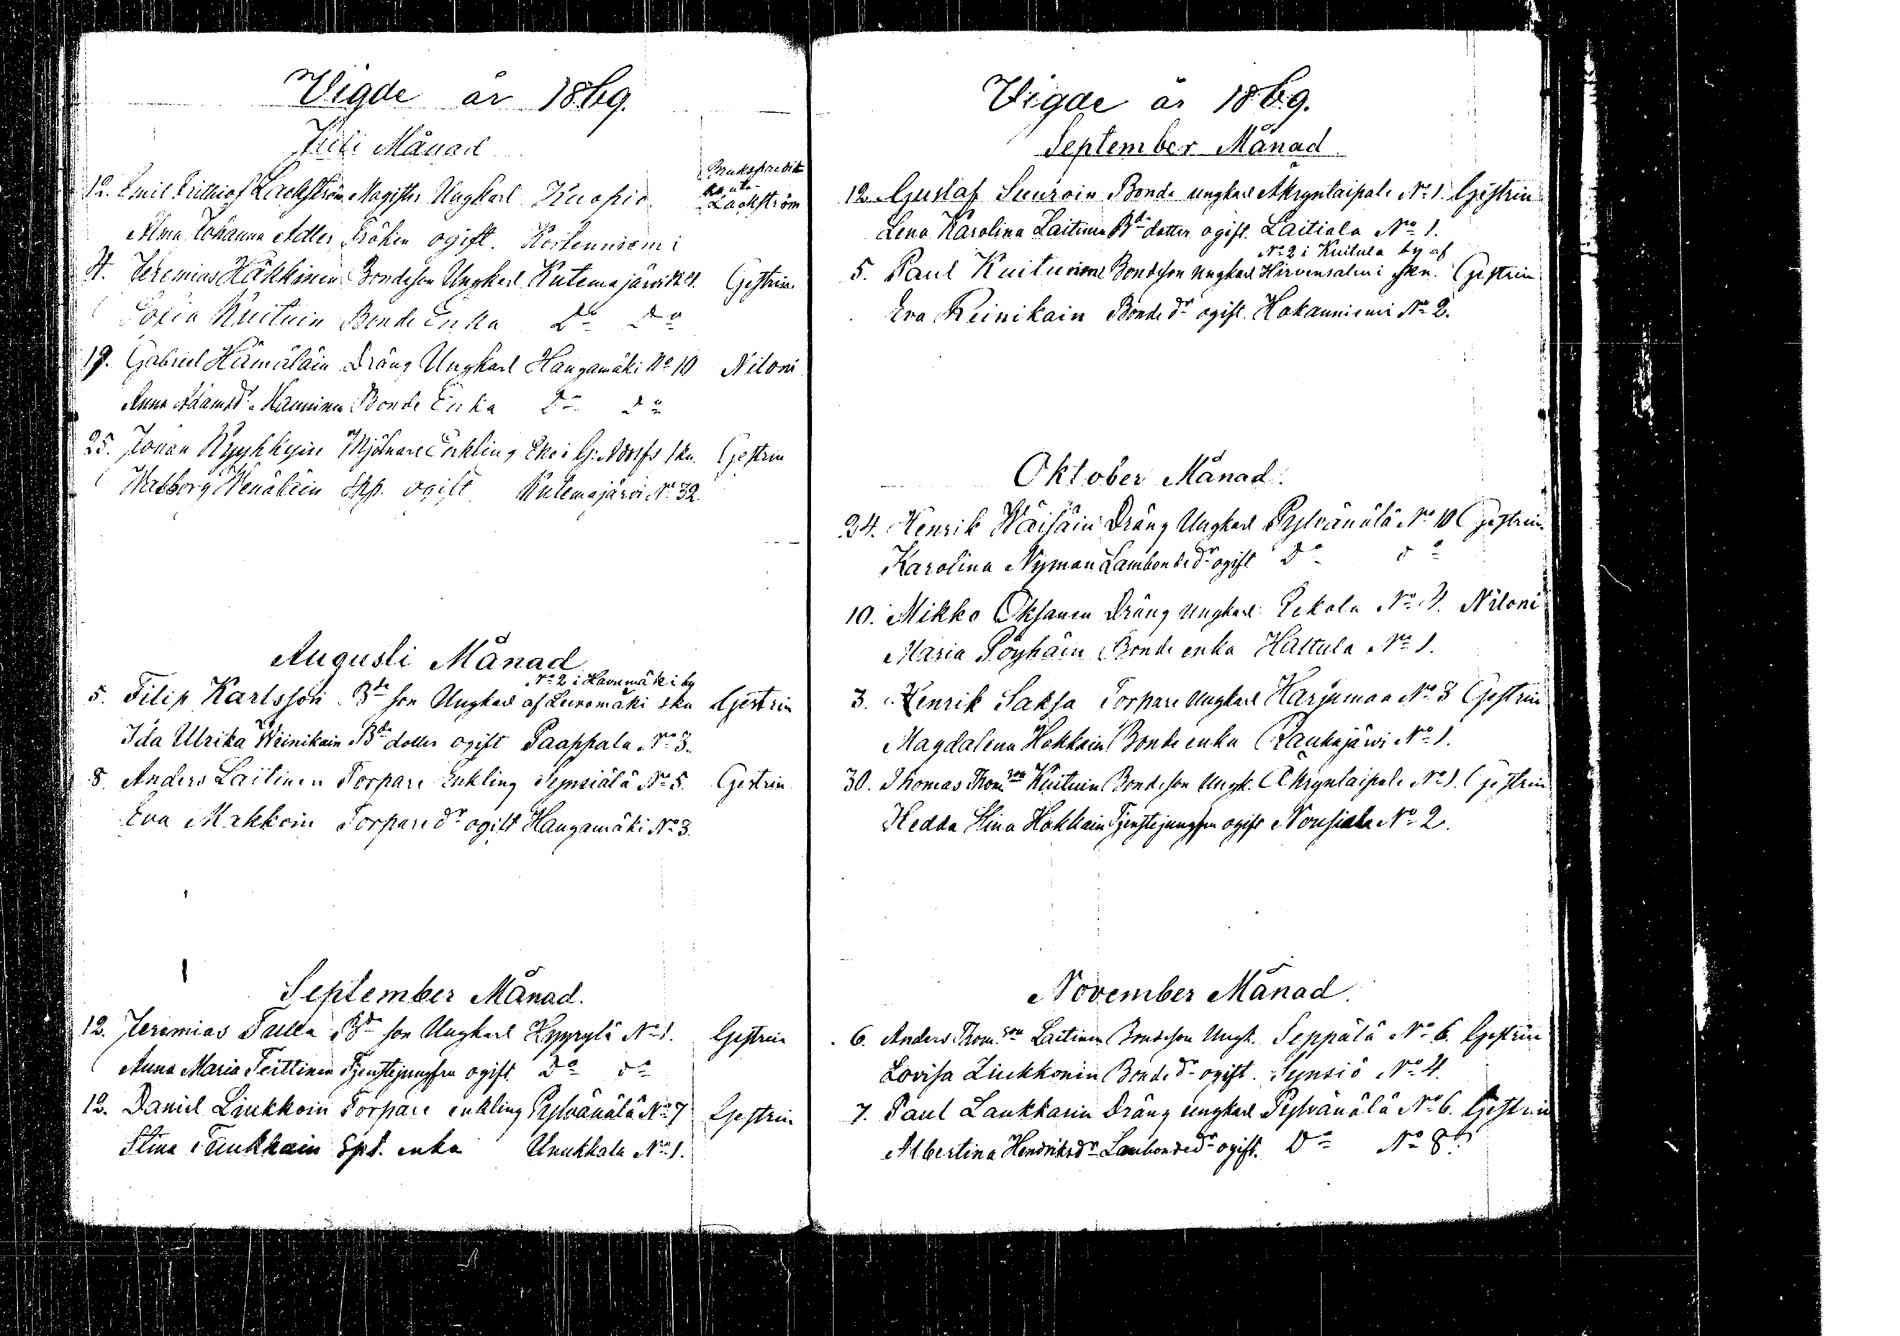 Vigde år 1869.
Juli Månad
12. Emil Frithiof Lackström Magister Ungkarl Kuopio Lackström
Alma Johanna Adler Fröken ogift. Kortenniemi
4. Jeremias Häkkinen Bondeson Ungkarl Kutemajärvi Gestrin
Sofia Kuituin Bonde Enka Do Do
19. Gabriel Hämäläin Dräng Ungkarl Hangamäki No 10 Niloni
Anna Adamsdr Manninen Bonde Enka Do Do
25. Johan Mjölnare Enkling skn. Gestrin
Walborg Wenäläin ogift Kutemajärvi No 32.
Augusti Månad
No 2 i Havumäki by
5. Filip Karlsson Bde son Ungkarl af Leivomäki skn Gestrin
Ida Ulrika Weinikain Bde dotter ogift Paappala No 3.
8. Anders Laitinen Torpare Enkling Synsiälä No 5. Gestrin
Eva Makkoin Torpare dr ogift Hangamäki No 3.
September Månad.
12. Jeremias Bde son Ungkarl Kyyrylä No 1. Gestrin
Anna Maria Teittinen Tjenstejungfru ogift Do do
12. Daniel Liukkoin Torpare enkling Pylvänälä No 7 Gestrin
Stina enka Unukkala No 1.
Vigde år 1869.
September Månad
12. Gustaf Suuroin Bonde ungkarl No 1. Gestrin
Lena Karolina Laitinen Bde dotter ogift. Laitiala No 1.
No 2 i Kuitula by af
5. Paul Kuitunen Bondeson Ungkarl Hirvensalmi skn. Gestrin
Eva Reinikain Bonde dr ogift. Hokanniemi No 2.
Oktober Månad.
24. Henrik Wäisäin Dräng Ungkarl Pylvänälä No 10 Gestrin
Karolina Nyman Lambonde dr ogift Do do
10. Mikko Oksanen Dräng Ungkarl Pekola No 4. Niloni
Maria Pöyhäin Bonde enka Hattula No 1.
3. Henrik Saksa Torpare Ungkarl Harjumaa No 3 Gestrin
Magdalena Hokkain Bonde enka Rauhajärvi No 1.
30. Thomas Thom.son Kuituin Bondeson Ungk. No 1. Gestrin
Hedda Stina Hokkain Tjenstejungfru ogift Nousiala No 2.
November Månad.
6. Anders Thom.son Laitinen Bondeson Ungk. Seppälä No 6. Gestrin
Lovisa Liukkonin Bonde dr ogift. Synsiö No 4.
7. Paul Laukkarin Dräng ungkarl Pylvänälä No 6. Gestrin
Albertina Hendriksdr Lambonde dr ogift. Do No 8.